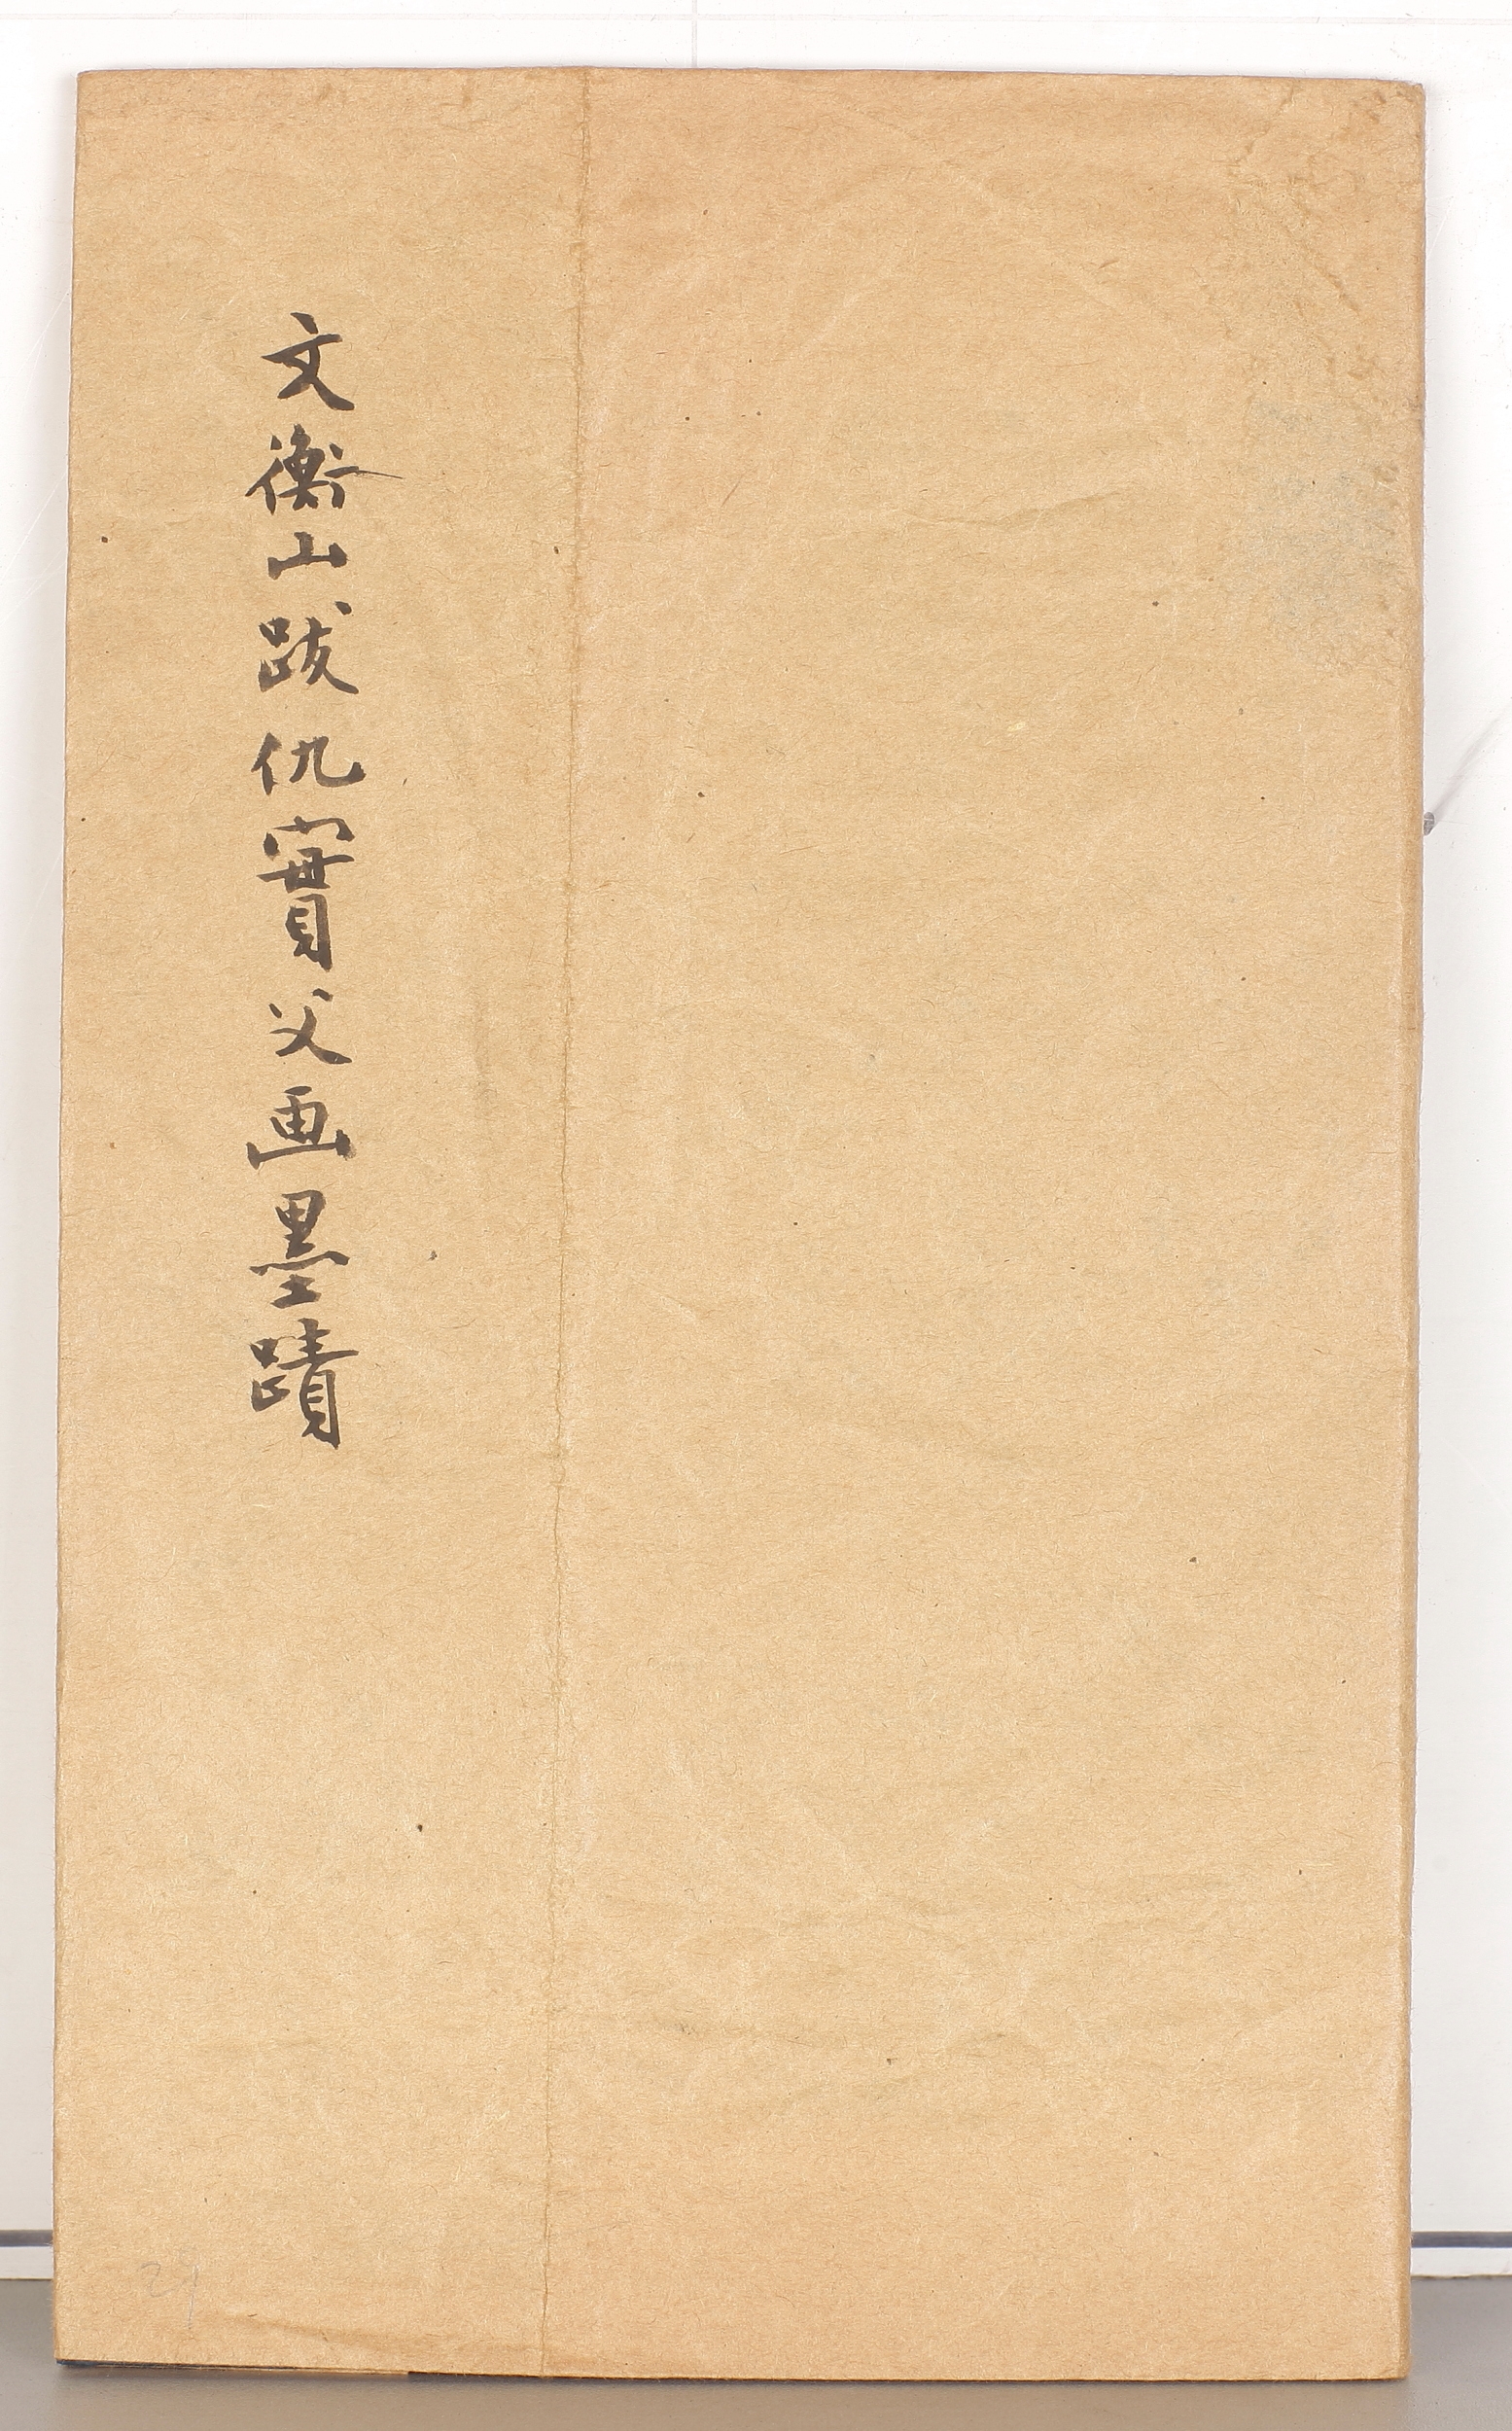 文衡山跋仇實父画墨蹟
29